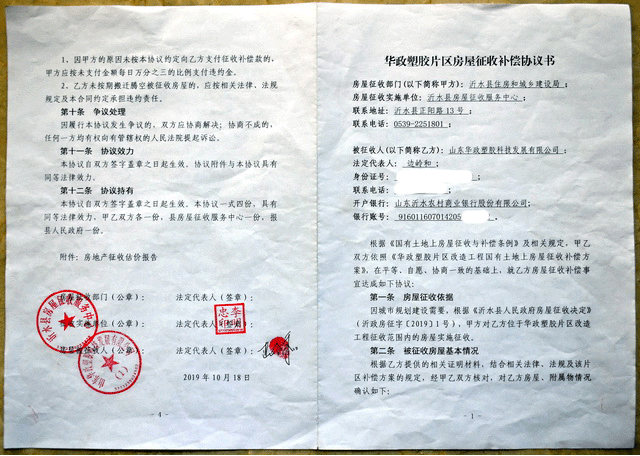 1、因甲方的原因未按本协议约定向乙方支付征收补偿款的，
甲方应按未支付金额每日万分之三的比例支付违约金。
2、乙方未按期搬迁腾空被征收房屋的，应按相关法律、法规
规定及本合同约定承担违约责任。
第十条 争议处理
因履行本协议发生争议的，双方应协商解决；协商不成的，
任何一方均有权向有管辖权的人民法院提起诉讼。
第十一条 协议效力
本协议自双方签字盖章之日起生效。协议附件与本协议具有
同等法律效力。
第十二条 协议持有
本协议自双方签字盖章之日起生效。本协议一式四份，具有
同等法律效力，甲乙双方各一份，县房屋征收服务中心一份，报
县人民政府一份。
附件：房地产征收估价报告
房屋征收部门（公章）： 法定代表人（签章）：
实施单位（公章）： 法定代表人
被征收人（公章）： 法定代表人（签章）：
2019 年 10 月 18 日
- 4 -
沂水县房屋征收服务中心
(1)
华政塑胶片区房屋征收补偿协议书
房屋征收部门(以下简称甲方)：沂水县住房和城乡建设局；
房屋征收实施单位：沂水县房屋征收服务中心；
联系地址：沂水县正阳路 13 号；
联系电话：0539-2251801；
被征收人(以下简称乙方)：山东华政塑胶科技发展有限公司；
法定代表人：边岭和；
身份证号：
联系电话：
开户银行：山东沂水农村商业银行股份有限公司；
银行账号：916011607014205
根据《国有土地上房屋征收与补偿条例》及相关规定，甲乙
双方依照《华政塑胶片区改造工程国有土地上房屋征收补偿方
案》，在平等、自愿、协商一致的基础上，就乙方房屋征收补偿事
宜达成如下协议：
第一条 房屋征收依据
因城市规划建设需要，根据《沂水县人民政府房屋征收决定》
（沂政房征字〔2019〕1 号），甲方对乙方位于华政塑胶片区改造
工程征收范围内的房屋实施征收。
第二条 被征收房屋基本情况
根据乙方提供的相关证明材料，结合相关法律、法规及该片
区补偿方案的规定，经甲乙双方核对，对乙方房屋、附属物情况
确认如下：
- 1 -